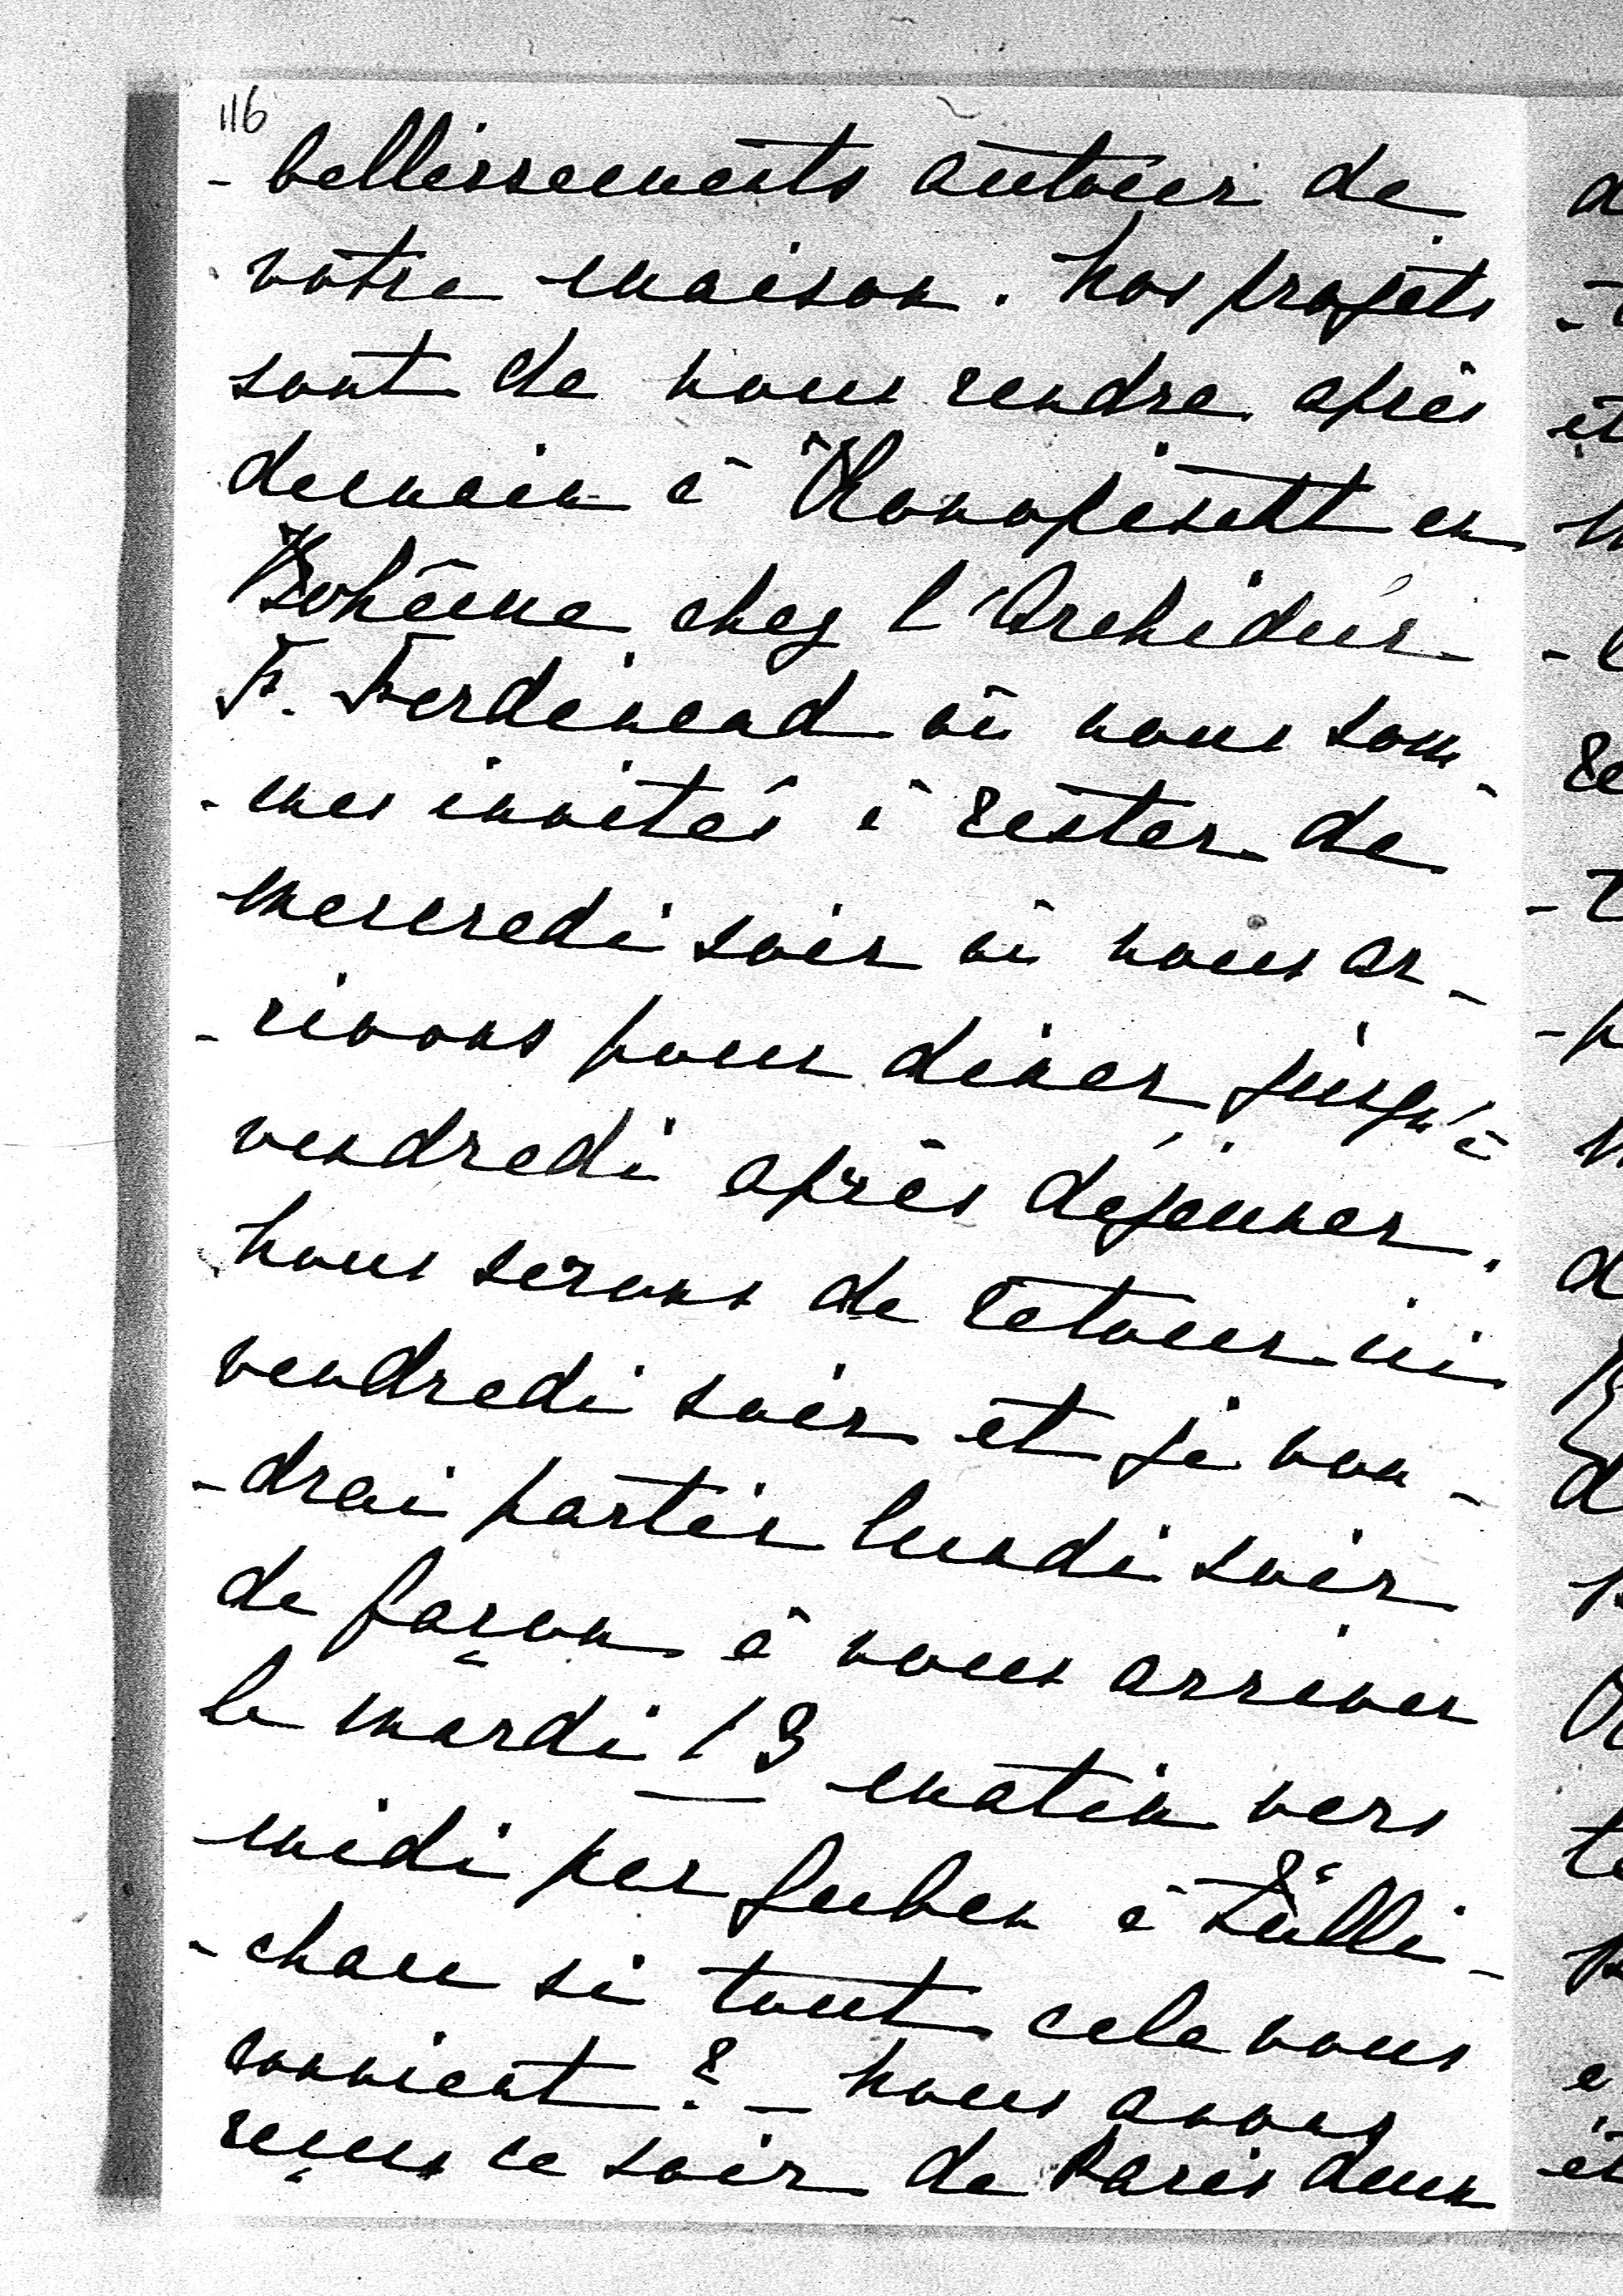 116
- bellissements autour de
votre maison. Nos projets
sont de nous rendre après
demain à Konopischt en
Bohême chez l'Archiduc
F. Ferdinand où nous som-
- mes invités à rester de
mercredi soir où nous ar-
- rivons pour diner jusqu'à
vendredi après déjeuner.
Nous serons de retour ici
vendredi soir et je vou-
- drai partir lundi soir
de façon à nous arriver
le mardi 13 matin vers
midi par Guben à Zülli-
- chau si tout cela vous
convient? - Nous avons
reçus ce soir de Paris deux